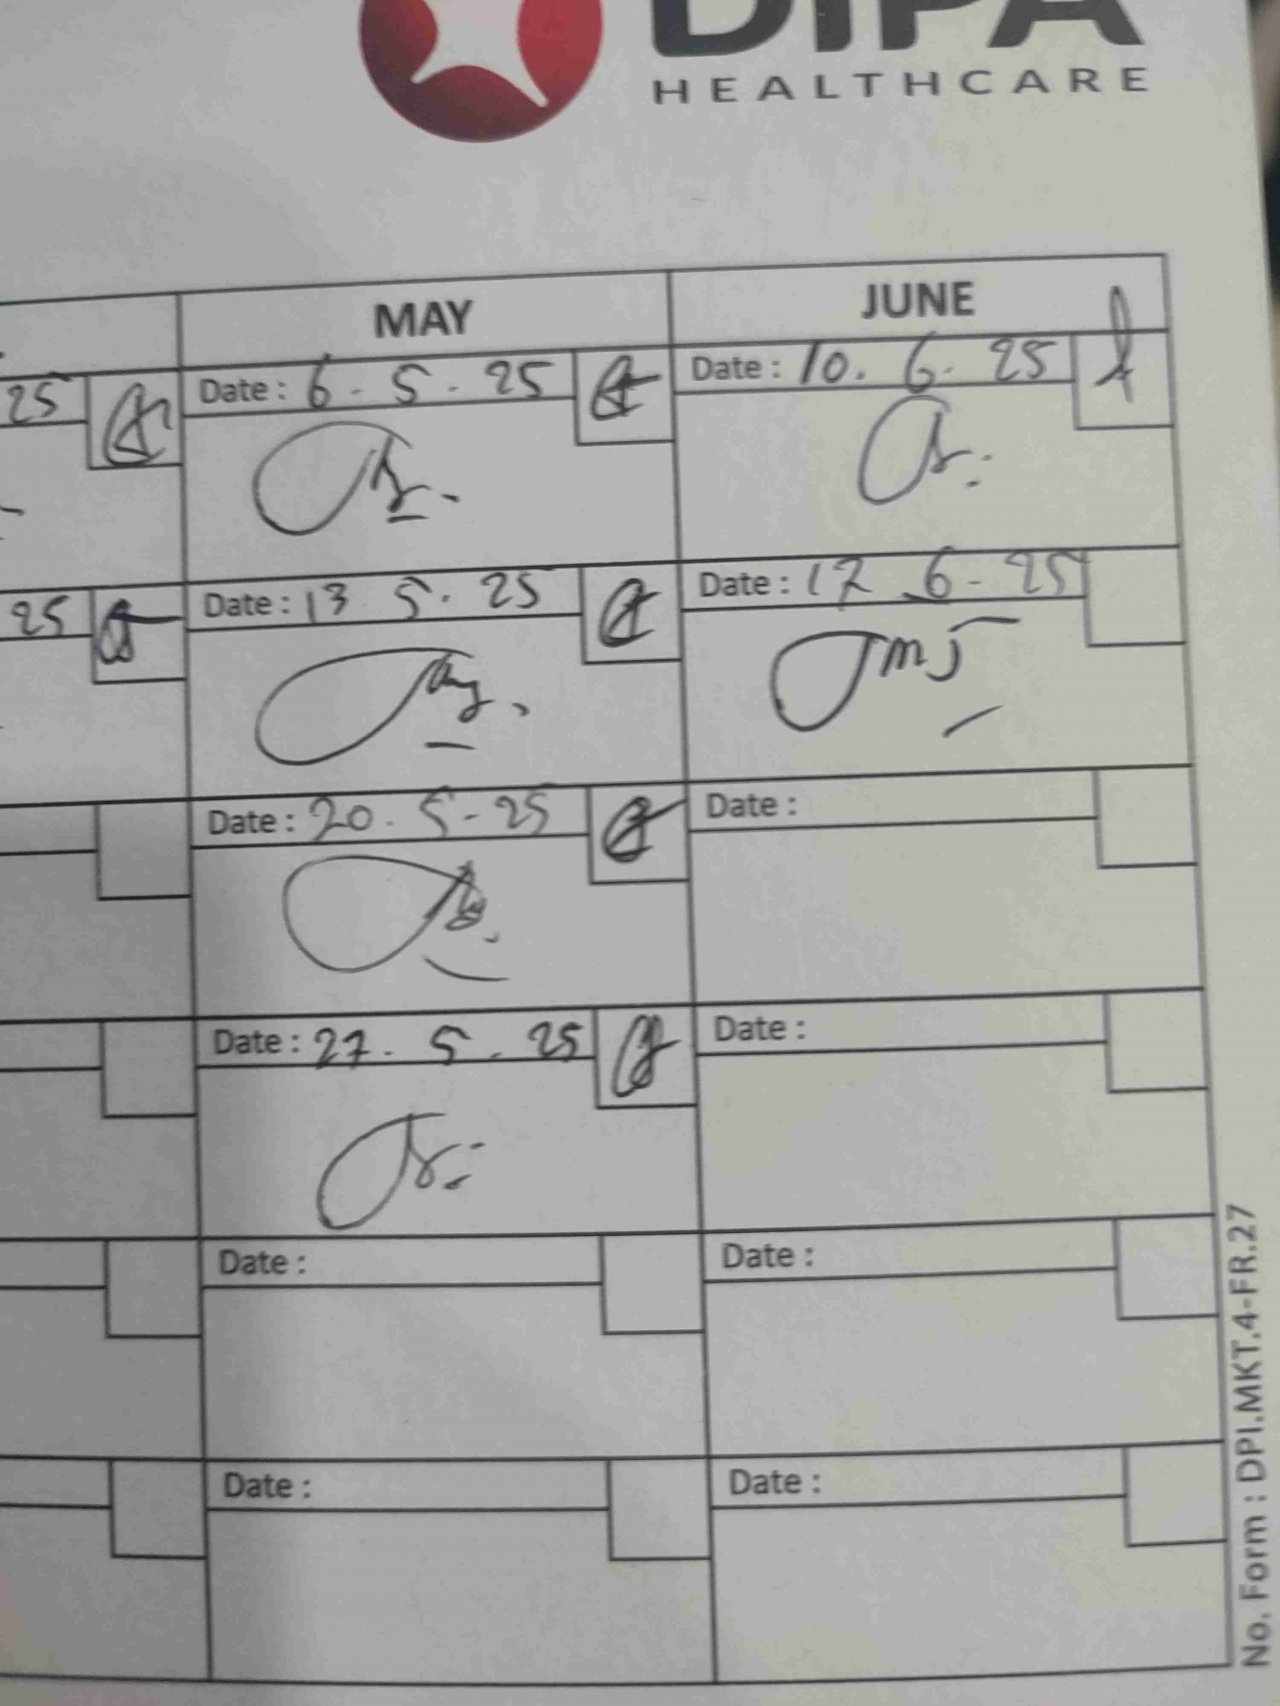 DIPA
HEALTHCARE
MAY JUNE
25 Date : 6 - 5 - 25 Date : 10. 6. 25
25 Date : 13 5. 25 Date : 17 6 - 25
Date : 20. 5 - 25 Date :
Date : 27. 5. 25 Date :
Date : Date :
Date : Date :
No. Form : DPI.MKT.4-FR.27